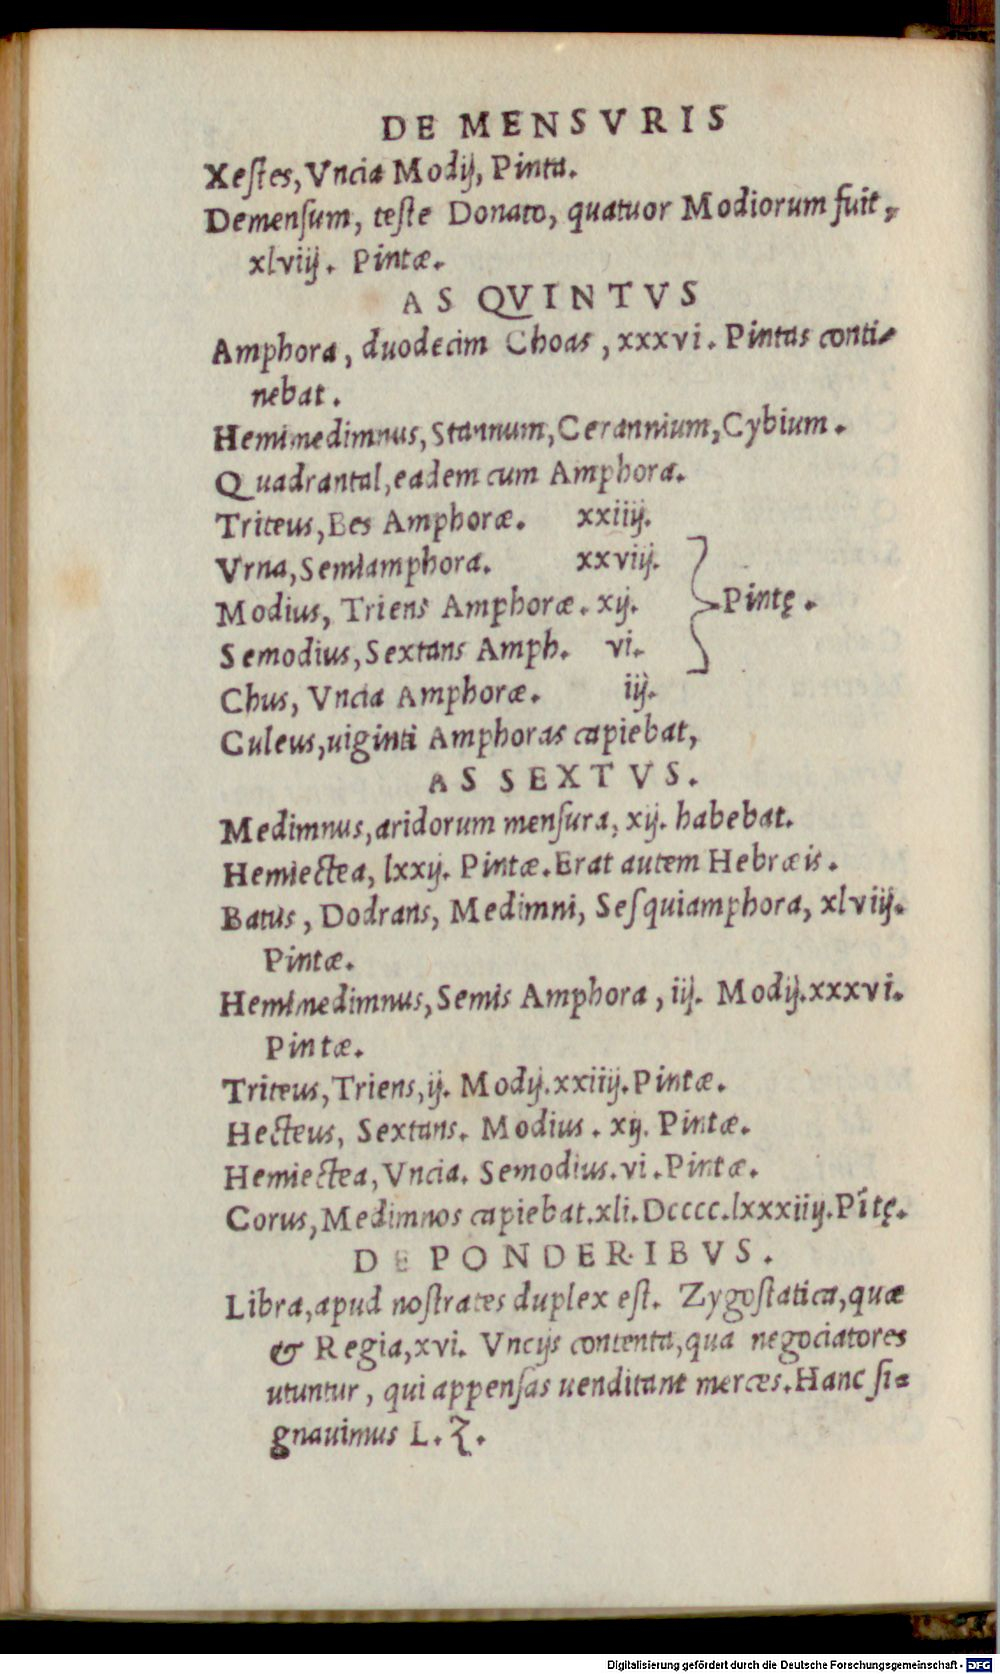 DE MENSVRIS
Xeſtes, Vncia Modij, Pinta.
Demenſum, teſte Donato, quatuor Modiorum fuit,
xlviij. Pintæ.
AS QVINTVS
Amphora, duodecim Choas, xxxvi. Pintas conti-
nebat.
Hemimedimnus, Stannum, Cerannium, Cybium.
Quadrantal, eadem cum Amphora.
Triteus, Bes Amphoræ. xxiiij.
Vrna, Semiamphora. xxviij.
Modius, Triens Amphoræ. xij. } Pintę.
Semodius, Sextans Amph. vi.
Chus, Vncia Amphoræ. iij.
Culeus, uiginti Amphoras capiebat,
AS SEXTVS.
Medimnus, aridorum menſura, xij. habebat.
Hemiectea, lxxij. Pintæ. Erat autem Hebræis.
Batus, Dodrans, Medimni, Seſquiamphora, xlviij.
Pintæ.
Hemimedimnus, Semis Amphora, iij. Modij. xxxvi.
Pintæ.
Triteus, Triens, ij. Modij. xxiiij. Pintæ.
Hecteus, Sextans. Modius. xij. Pintæ.
Hemiectea, Vncia. Semodius. vi. Pintæ.
Corus, Medimnos capiebat. xli. Dcccc. lxxxiiij. Pĩtę.
DE PONDERIBVS.
Libra, apud noſtrates duplex eſt. Zygoſtatica, quæ
& Regia, xvi. Vncijs contenta, qua negociatores
utuntur, qui appenſas uenditant merces. Hanc ſi-
gnauimus L. Ʒ.
Digitalisierung gefördert durch die Deutsche Forschungsgemeinschaft - DFG